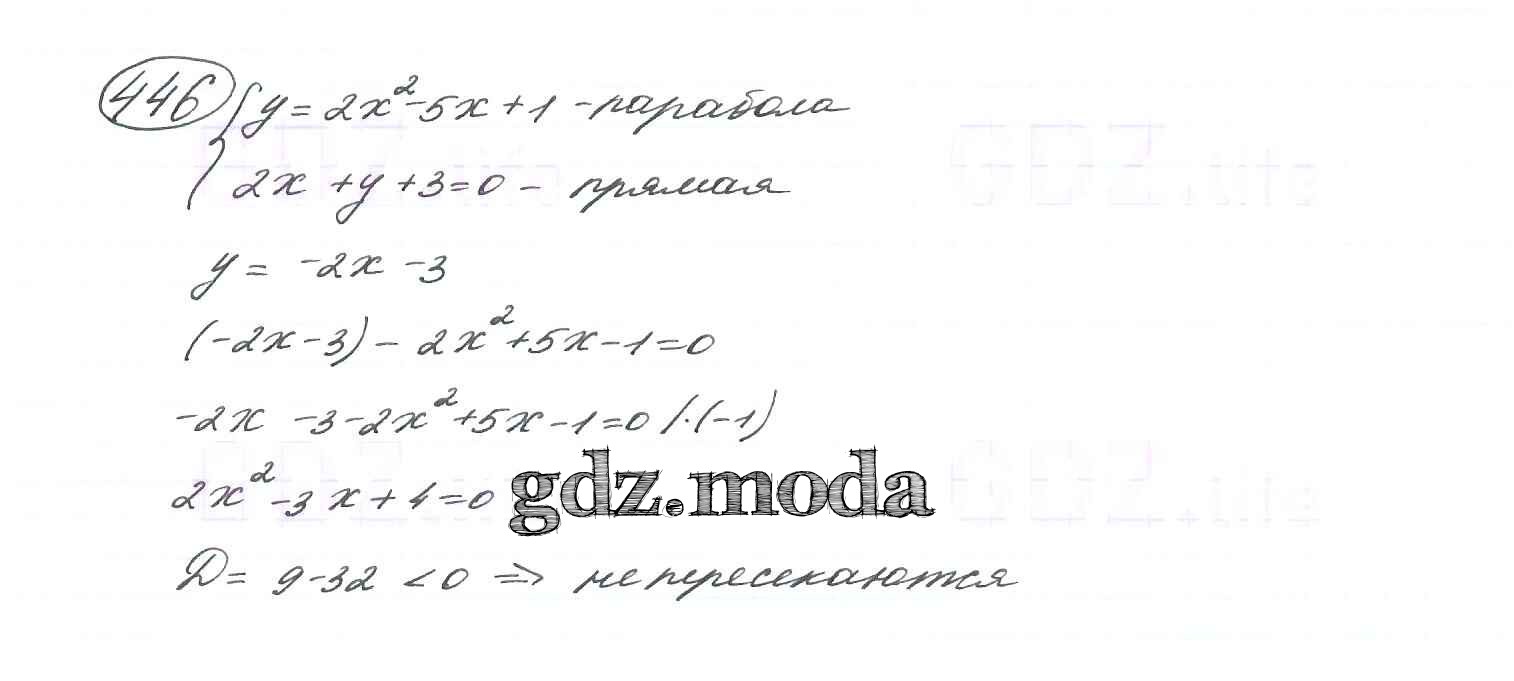 446 { y = 2x² - 5x + 1 - парабола
2x + y + 3 = 0 - прямая
y = -2x - 3
(-2x - 3) - 2x² + 5x - 1 = 0
-2x - 3 - 2x² + 5x - 1 = 0 /·(-1)
2x² - 3x + 4 = 0 gdz.moda
D = 9 - 32 < 0 => не пересекаются